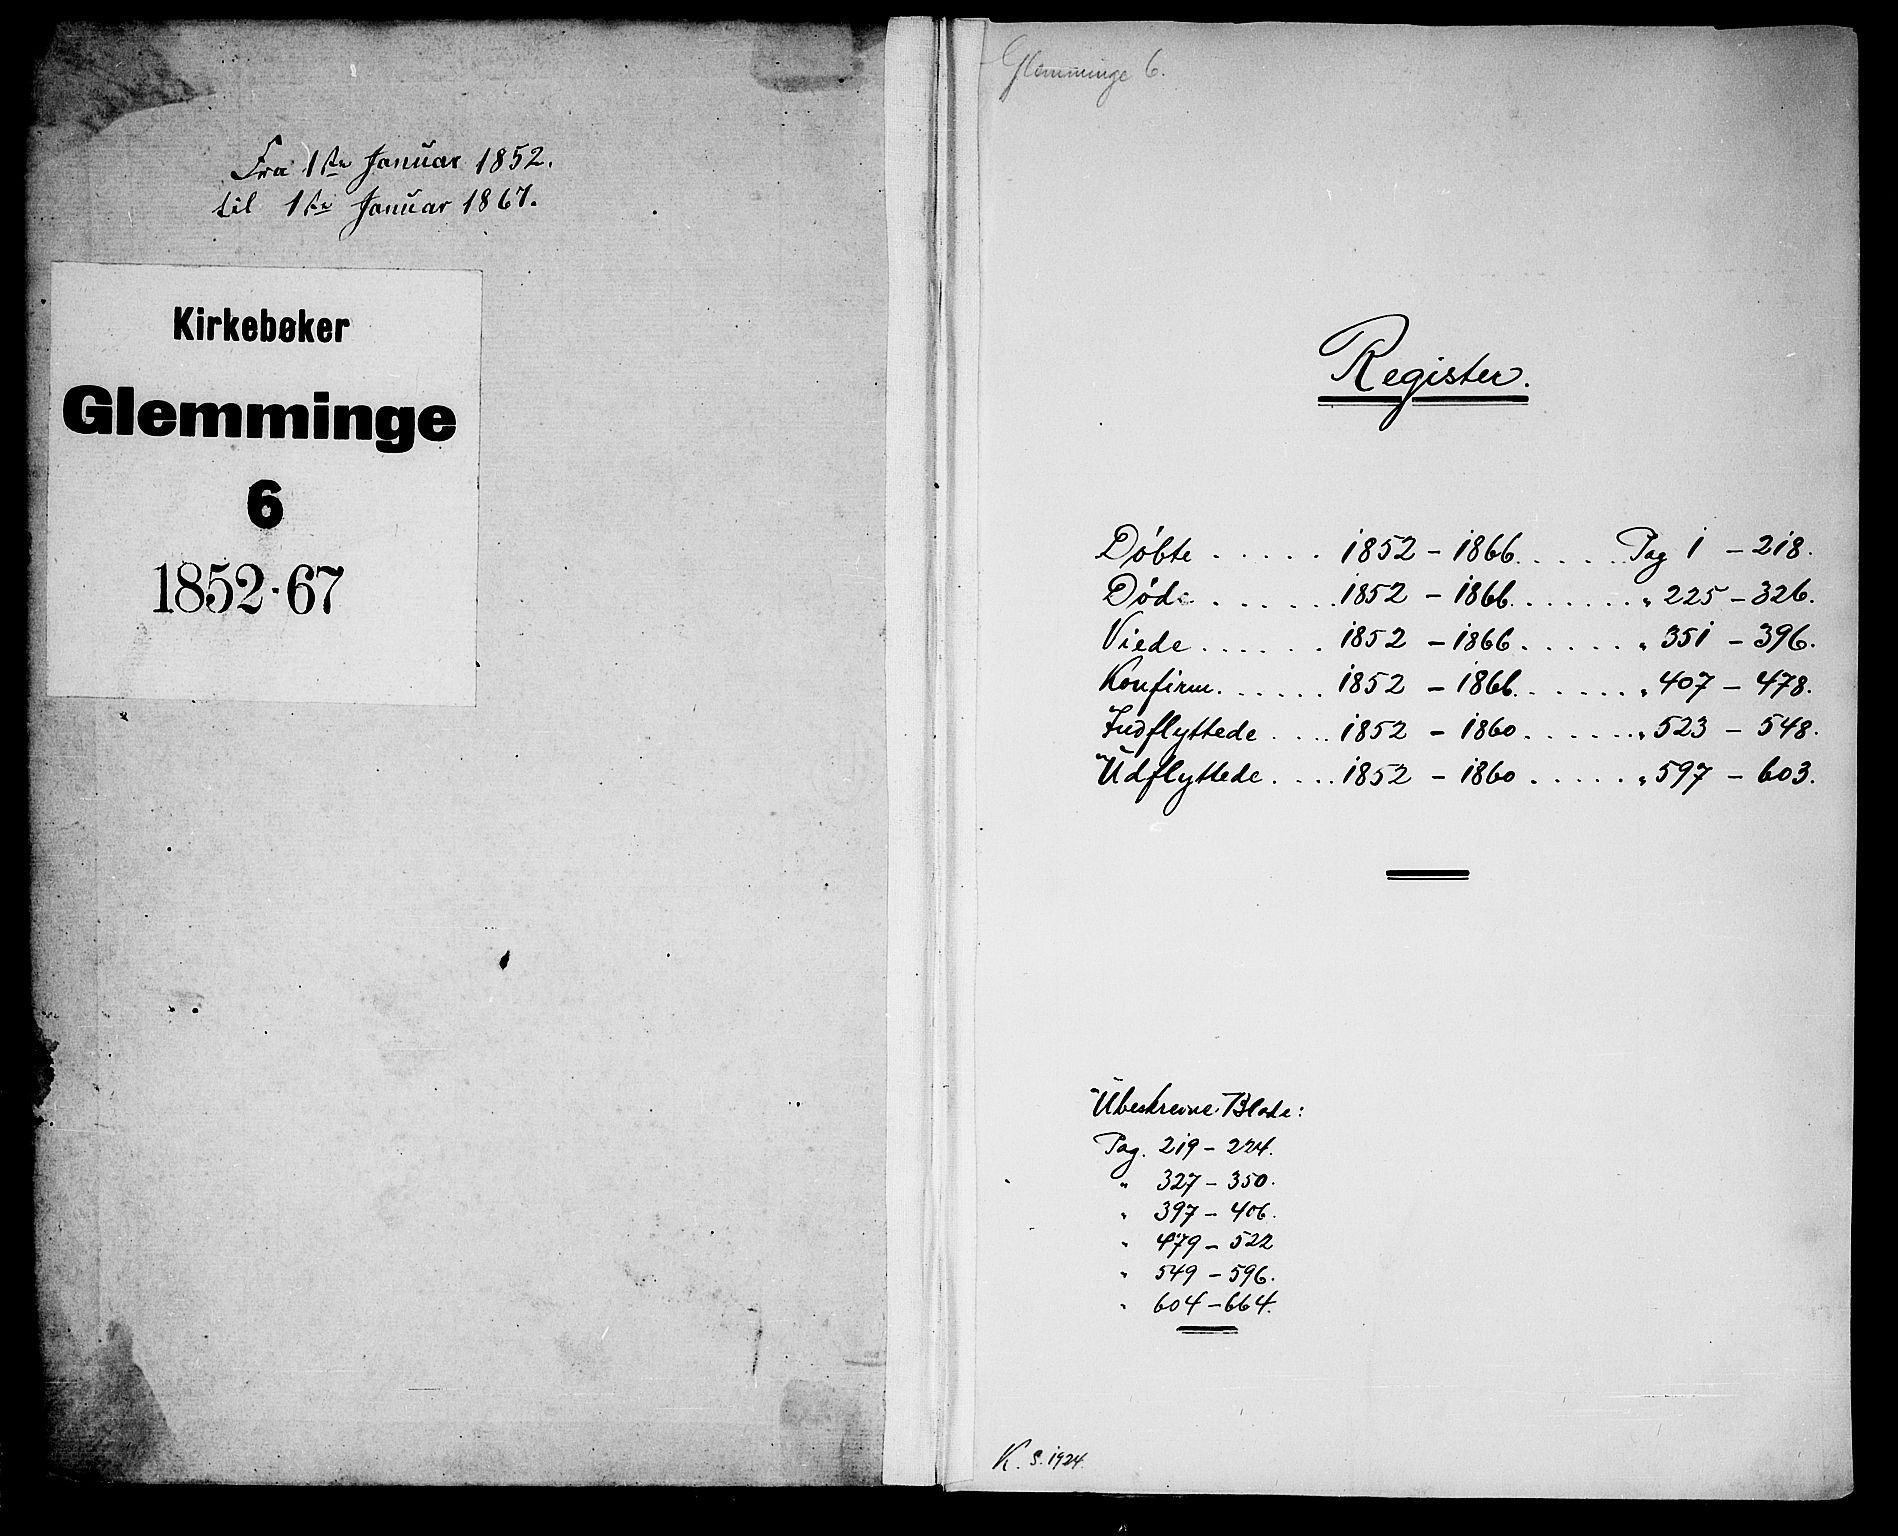 Fra 1ste Januar 1852.
til 1ste Januar 1867.
Kirkebøker
Glemminge
6
1852-67
Glemminge 6.
Register.
Døbte . . . . . 1852 – 1866 . . . . . Pag 1 – 218.
Døde . . . . . . 1852 – 1866 . . . . . . " 225 – 326.
Viede . . . . . . 1852 – 1866 . . . . . . " 351 – 396.
Konfirm. . . . . . 1852 – 1866 . . . . . . " 407 – 478.
Indflyttede . . . . 1852 – 1860 . . . . . . " 523 – 548.
Udflyttede . . . . 1852 – 1860 . . . . . " 597 – 603.
Ubeskrevne Blade:
Pag. 219 – 224.
" 327 – 350.
" 397 – 406.
" 479 – 522
" 549 – 596.
" 604 – 664.
K. S. 1924.